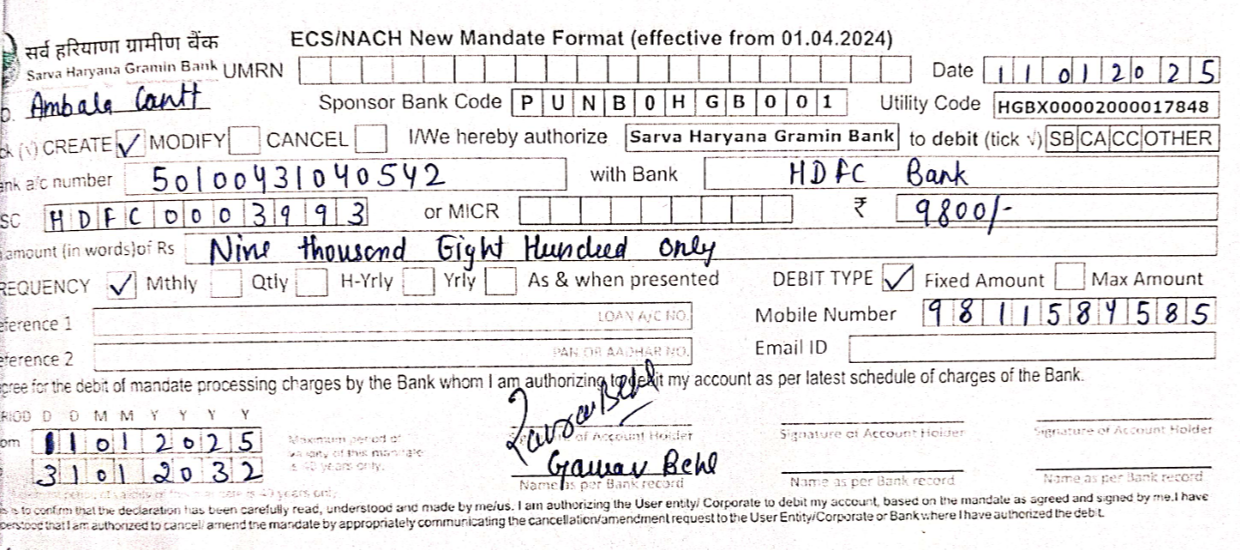 सर्व हरियाणा ग्रामीण बैंक
ECS/NACH New Mandate Format (effective from 01.04.2024)
Sarva Haryana Gramin Bank UMRN Date 11012025
Ambala Cantt Sponsor Bank Code PUNB0HGB001 Utility Code HGBX00002000017848
(√) CREATE ✓ MODIFY CANCEL I/We hereby authorize Sarva Haryana Gramin Bank to debit (tick √) SB CA CC OTHER
nk a/c number 50100431040542 with Bank HDFC Bank
SC HDFC0003993 or MICR ₹ 9800/-
amount (in words) of Rs Nine thousand Eight Hundred only
REQUENCY ✓ Mthly Qtly H-Yrly Yrly As & when presented DEBIT TYPE ✓ Fixed Amount Max Amount
ference 1 LOAN A/C NO. Mobile Number 9811584585
ference 2 PAN OR AADHAR NO. Email ID
gree for the debit of mandate processing charges by the Bank whom I am authorizing to debit my account as per latest schedule of charges of the Bank.
RIOD D D M M Y Y Y Y
om 11012025 Maximum period of validity of this mandate is 40 years only.
31012032
Gaurav Behl
of Account Holder Signature of Account Holder Signature of Account Holder
Gaurav Behl
Name as per Bank record Name as per Bank record Name as per Bank record
is to confirm that the declaration has been carefully read, understood and made by me/us. I am authorizing the User entity/ Corporate to debit my account, based on the mandate as agreed and signed by me. I have
perstood that I am authorized to cancel/ amend the mandate by appropriately communicating the cancellation/amendment request to the User Entity/Corporate or Bank where I have authorized the debit.